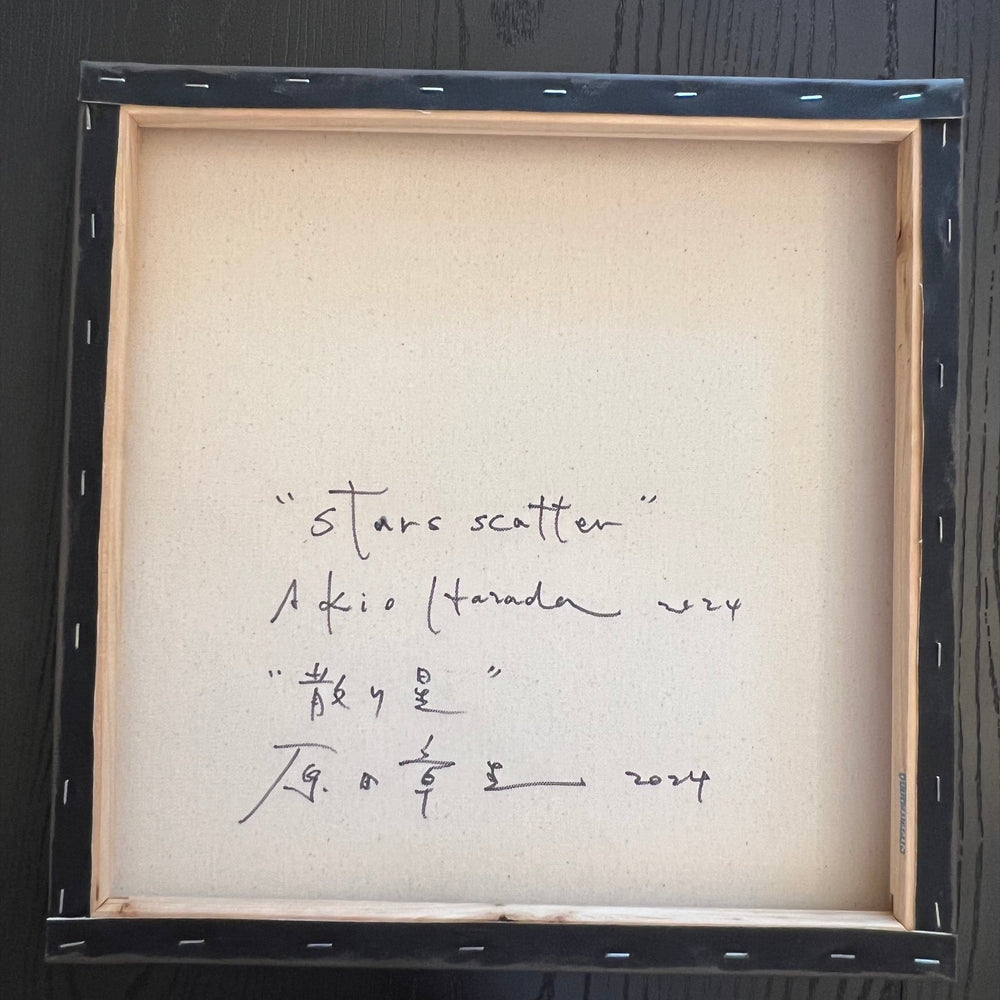 "stars scatter"
Akio Harada 2024
"散り星"
原田章生 2024